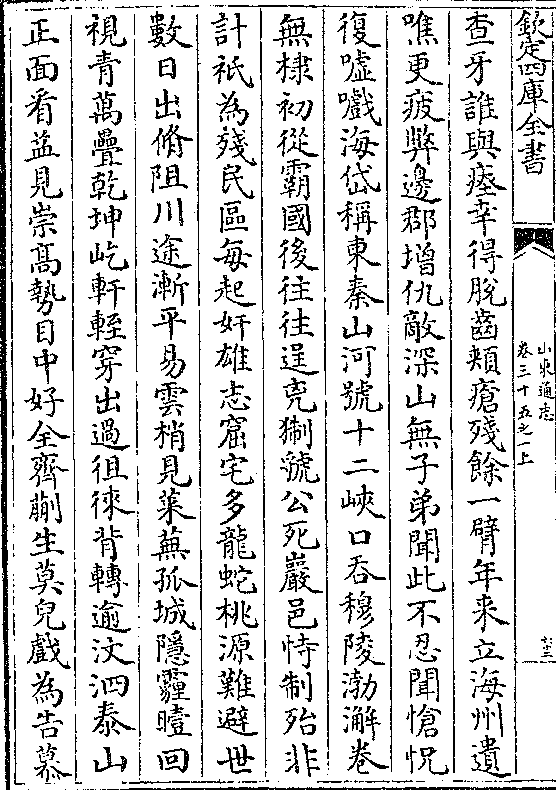 欽定四庫全書
山東通志
卷三十五之一上
查牙誰與瘞幸得脫齒頰瘡殘餘一臂年来立海州遺
噍更疲弊邊郡增仇敵深山無子弟聞此不忍聞愴怳
復噓嚱海岱稱東秦山河號十二峽口吞穆陵渤澥卷
無棣初從霸國後往往逞兖猘虢公死巖邑恃制殆非
計祇為殘民區每起奸雄志窟宅多龍蛇桃源難避世
數日出脩阻川途漸平易雲梢見萊蕪孤城隱霾曀回
視青萬疊乾坤屹軒輊穿出過徂徠背轉逾汶泗泰山
正面看益見崇髙勢目中好全齊蒯生莫兒戲為告慕